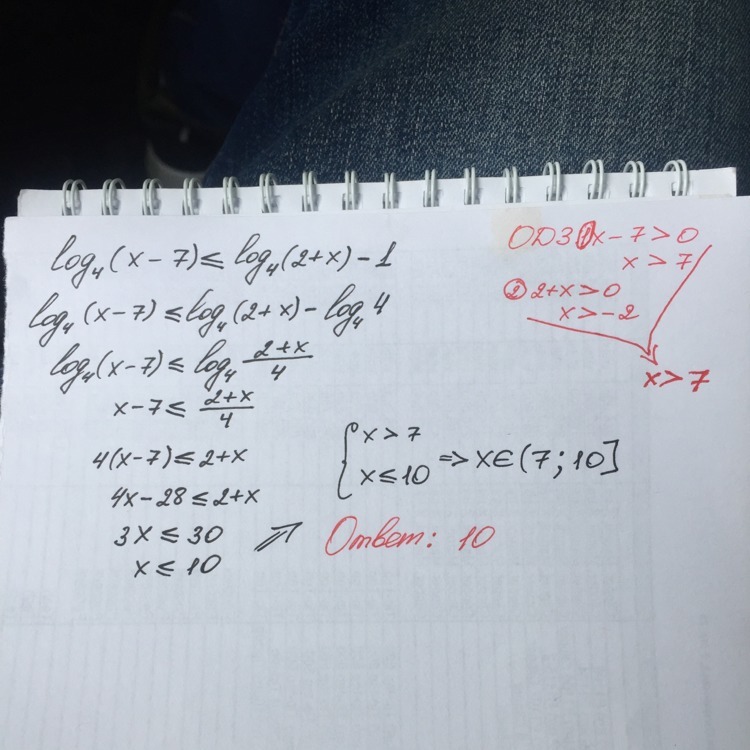 log₄(x-7)≤log₄(2+x)-1
log₄(x-7)≤log₄(2+x)-log₄4
log₄(x-7)≤log₄ (2+x)/4
x-7≤ (2+x)/4
4(x-7)≤2+x
4x-28≤2+x
3x≤30
x≤10
ОДЗ ① x-7>0
x>7
② 2+x>0
x>-2
x>7
{ x>7
x≤10 => x∈(7;10]
Ответ: 10